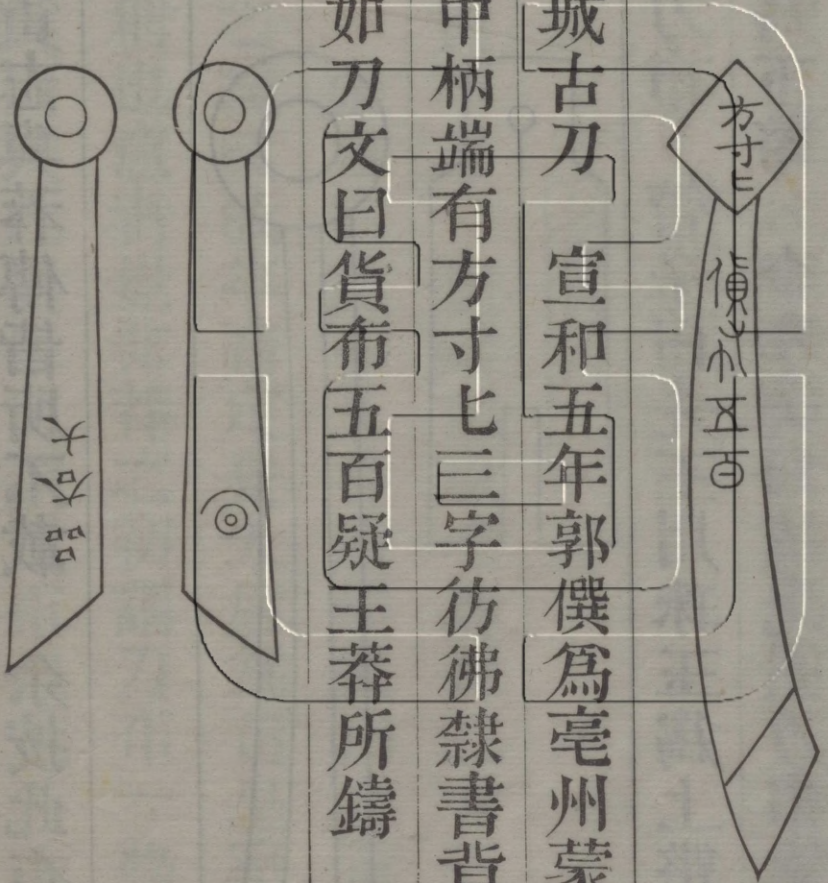 方寸匕
貨布五百
城古刀　宣和五年郭僎爲亳州蒙
中柄端有方寸匕三字彷彿隸書背
如刀文曰貨布五百疑王莽所鑄